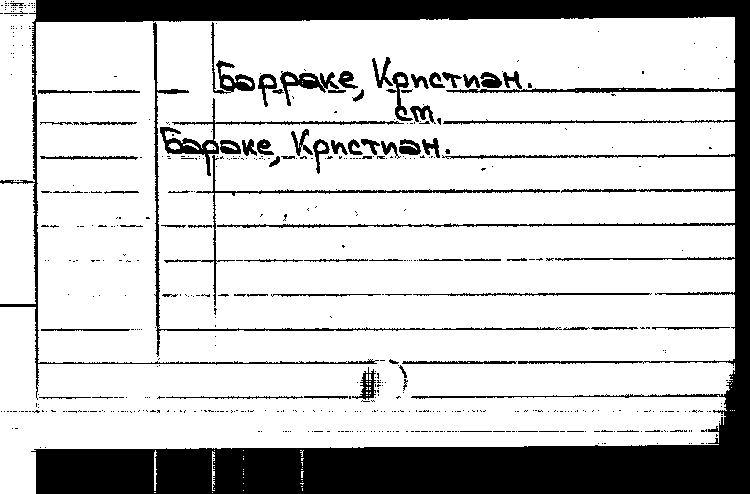 Барраке, Кристиан.
ст.
Бараке, Кристиан.